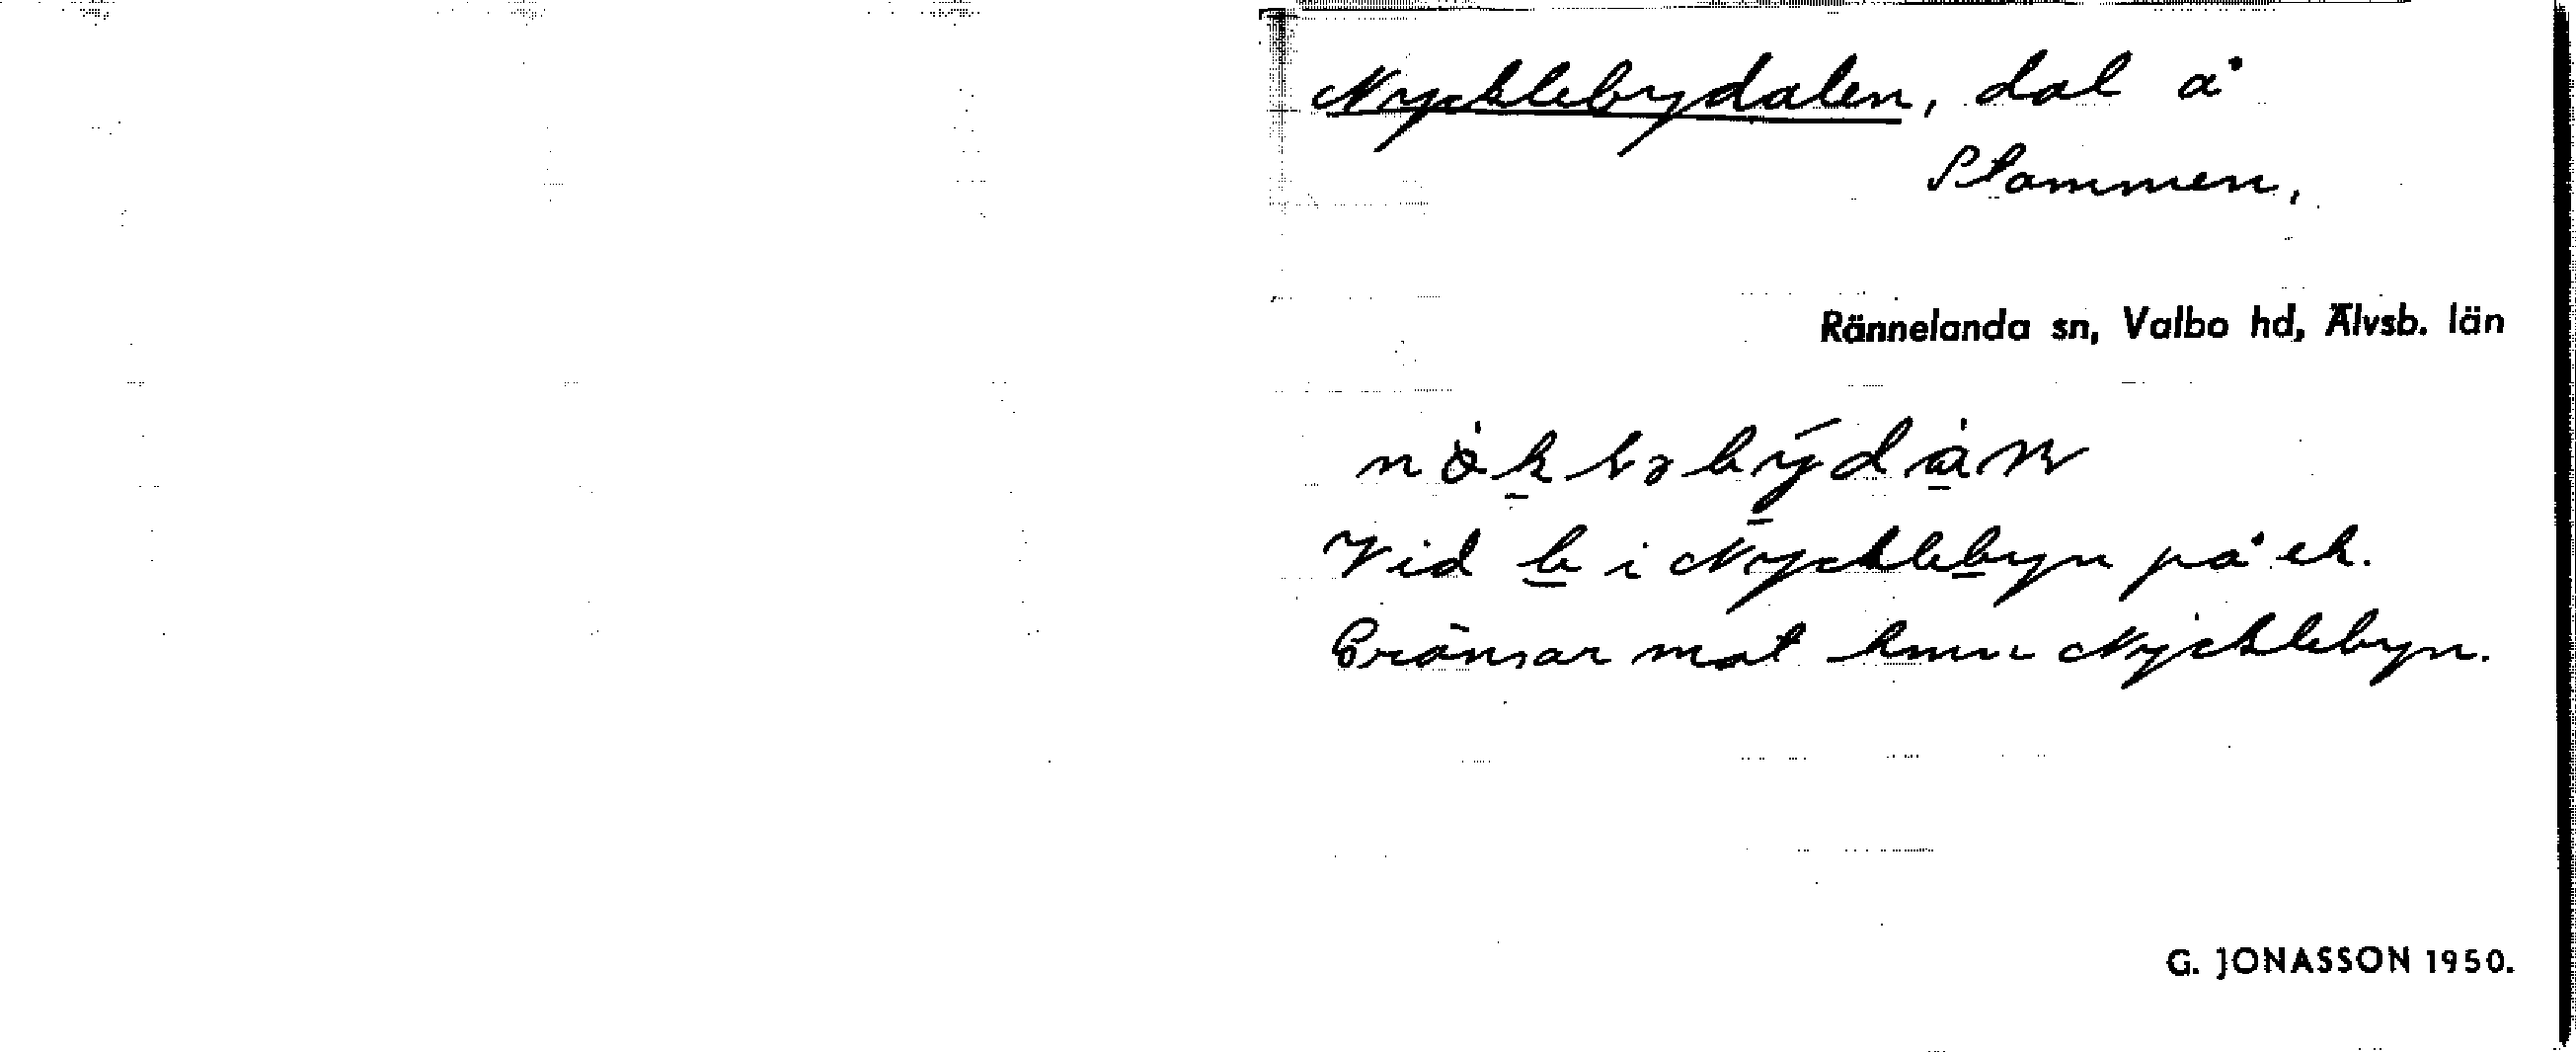 Nycklebydalen, dal å
Stommen,
Rännelanda sn, Valbo hd, Älvsb. län
Vid b i Nycklebyn på ek.
Gränsar mot hmn Nycklebyn.
G. JONASSON 1950.